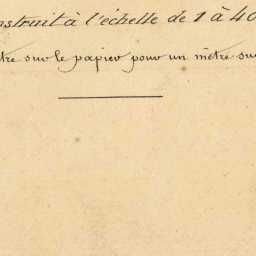 nstruit à l'échelle de 1 à 40
tre sur le papier pour un mètre su